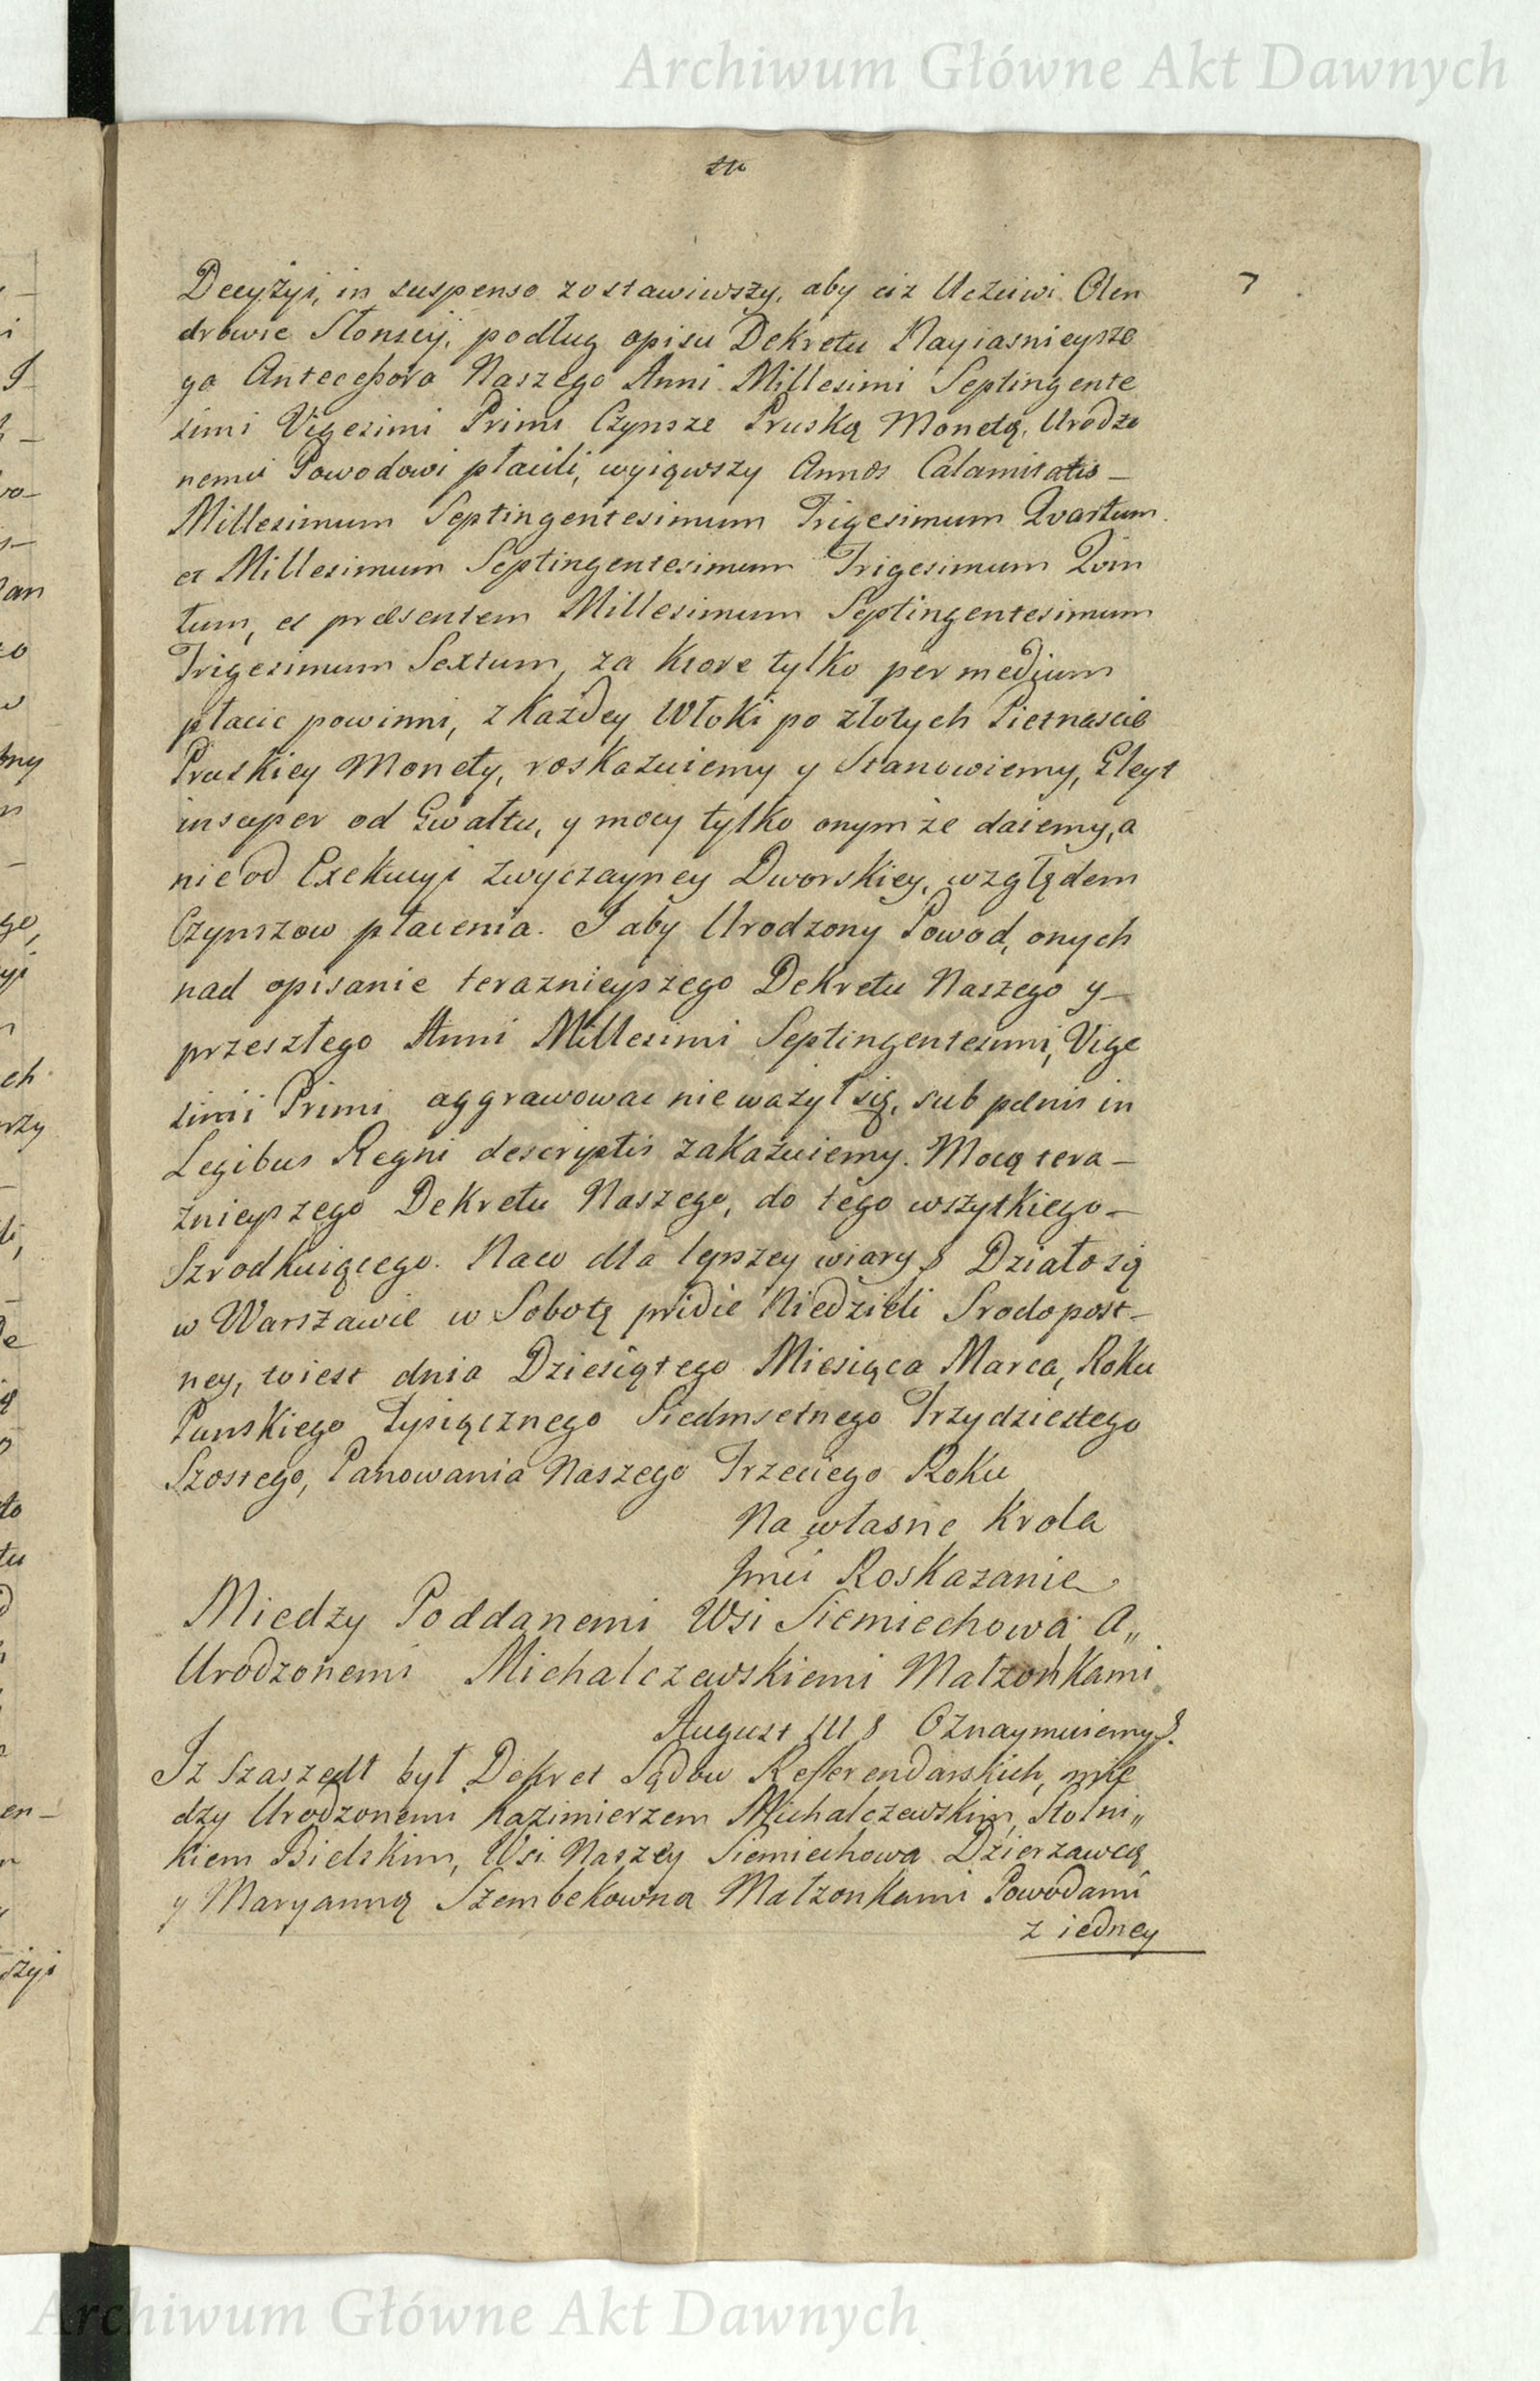 Archiwum Główne Akt Dawnych
7
Decyżyi, in suspenso zostawiwszy, aby ciż Uczciwi Olen
drowie Słonscy, podług opisu Dekretu Nayiasnieysze
go Antecessora Naszego Anni Millesimi Septingente
simi Vigesimi Primi Czynsze Pruską Monetą, Urodzo
nemu Powodowi płacili, wyiąwszy Annos Calamitatis –
Millesimum Septingentesimum Trigesimum Qvartum
et Millesimum Septingentesimum Trigesimum Qvin
tum, et præsentem Millesimum Septingentesimum
Trigesimum Sextum, za ktore tylko per medium
płacic powinni, z każdey Włoki po złotych Pietnascie
Pruskiey Monety, roskazuiemy y Stanowiemy, Gleyt
insuper od Gwałtu, y mocy tylko onymże daiemy, a
nie od Exekucyi zwyczayney Dworskiey, względem
Czynszow płacenia. I aby Urodzony Powod, onych
nad opisanie teraznieyszego Dekretu Naszego y –
przeszłego Anni Millesimi Septingentesimi, Vige
simi Primi aggrawowac nie ważył się, sub pœnis in
Legibus Regni descriptis zakazuiemy. Mocą tera –
znieyszego Dekretu Naszego, do tego wszytkiego –
Szrodkuiącego. Na co dla lepszey wiary § Działo się
w Warszawie w Sobotę pridie Niedzieli Srodopost –
ney, to iest dnia Dziesiątego Miesiąca Marca, Roku
Panskiego Tysiącznego Siedmsetnego Trzydziestego
Szostego, Panowania Naszego Trzeciego Roku
Na własne Krola
Jmci Roskazanie
Miedzy Poddanemi Wsi Siemiechowa A„
Urodzonemi Michalczewskiemi Małzonkami
August III § Oznaymuiemy §.
Iz Szaszedł był Dekret Sądow Referendarskich, mię
dzy Urodzonemi Kazimierzem Michalczewskim, Stolni„
kiem Bielskim, Wsi Naszey Siemiechowa Dzierzawcą
y Maryanną Szembekowną Małzonkami Powodami
z iedney
Archiwum Główne Akt Dawnych